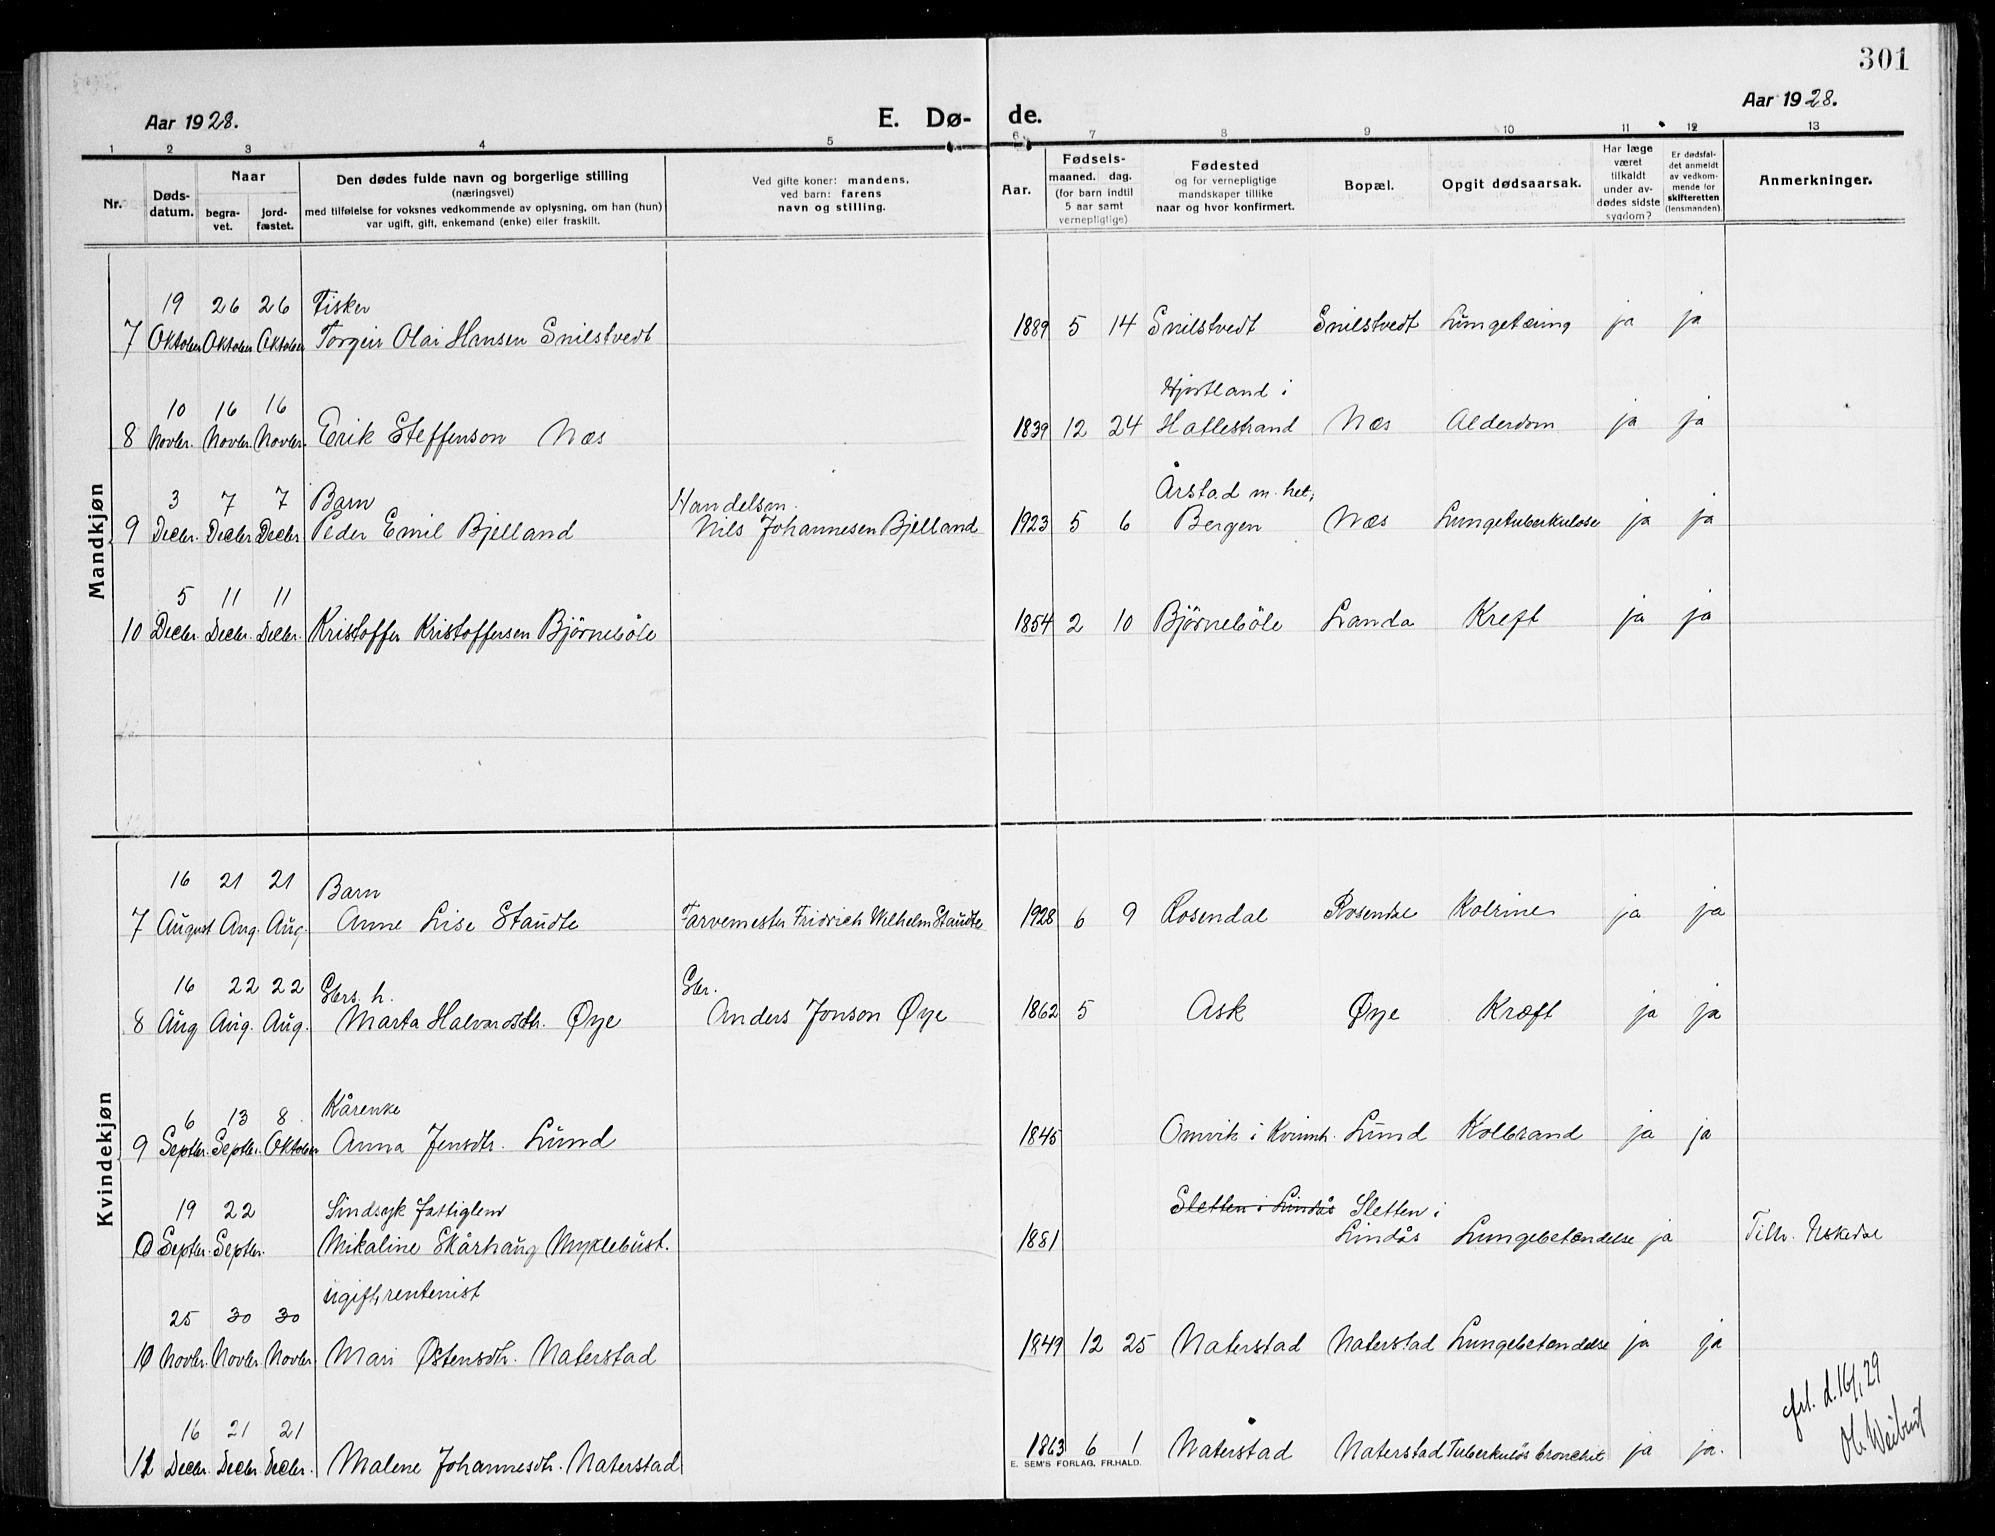 301
Aar 1928.
E. Dø- de.
Aar 1928.
1 2 3 4 5 6 7 8 9 10 11 12 13
Nr.
Døds-
datum.
Naar
begra-
vet.
jord-
fæstet.
Den dødes fulde navn og borgerlige stilling
(næringsvei)
med tilføielse for voksnes vedkommende av oplysning, om han (hun)
var ugift, gift, enkemand (enke) eller fraskilt.
Ved gifte koner: mandens,
ved barn: farens
navn og stilling.
Aar.
Fødsels-
maaned. dag.
(for barn indtil
5 aar samt
vernepligtige)
Fødested
og for vernepligtige
mandskaper tillike
naar og hvor konfirmert.
Bopæl.
Opgit dødsaarsak.
Har læge
været
tilkaldt
under av-
dødes sidste
sygdom?
Er dødsfal-
det anmeldt
av vedkom-
mende for
skifteretten
(lensmanden).
Anmerkninger.
Mandkjøn
19 26 26 Fisker
7 Oktober Oktober Oktober Torgeir Olai Hansen Snilstvedt 1889 5 14 Snilstvedt Snilstvedt Lungetæring ja ja
Hjortland i
10 16 16
8 Novbr. Novbr. Novbr. Erik Steffenson Næs 1839 12 24 Hatlestrand Næs Alderdom ja ja
3 7 7 Barn Handelsm. Årstad m. het,
9 Decbr. Decbr Decbr Peder Emil Bjelland Nils Johannesen Bjelland 1923 5 6 Bergen Næs Lungetuberkulose ja ja
5 11 11
10 Decbr. Decbr. Decbr. Kristoffer Kristoffersen Bjørnebøle 1854 2 10 Bjørnebøle Landa Kreft ja ja
Kvindekjøn
16 21 21 Barn
7 August Aug. Aug. Anne Lise Staudte Farvemester Fridrich Wilhelm Staudte 1928 6 9 Rosendal Rosendal Kolrine ja ja
16 22 22 Gbrs. h. Gbr.
8 Aug Aug. Aug. Marta Halvardsdtr. Øye Anders Jonson Øye 1862 5 Ask Øye Kræft ja ja
6 13 8 Kårenke
9 Septbr. Septbr. Oktober Anna Jensdtr. Lund 1845 Omvik i Kvinnh. Lund Kolbrand ja ja
19 22 Sindsyk fattiglem Sletten i Lindås Sletten i
0 Septbr. Septbr. Mikaline Skårhaug Myklebust. 1881 Lindås Lungebetændelse ja Tilh. Uskedal
ugift, rentenist
25 30 30
10 Novbr. Novbr. Novbr Mari Østensdtr. Naterstad 1849 12 25 Naterstad Naterstad Lungebetændelse ja ja
16 21 21
11 Decbr. Decbr Decbr. Malene Johannesdtr. Naterstad 1863 6 1 Naterstad Naterstad Tuberkuløs bronchit ja ja.
E. SEM'S FORLAG, FR.HALD.